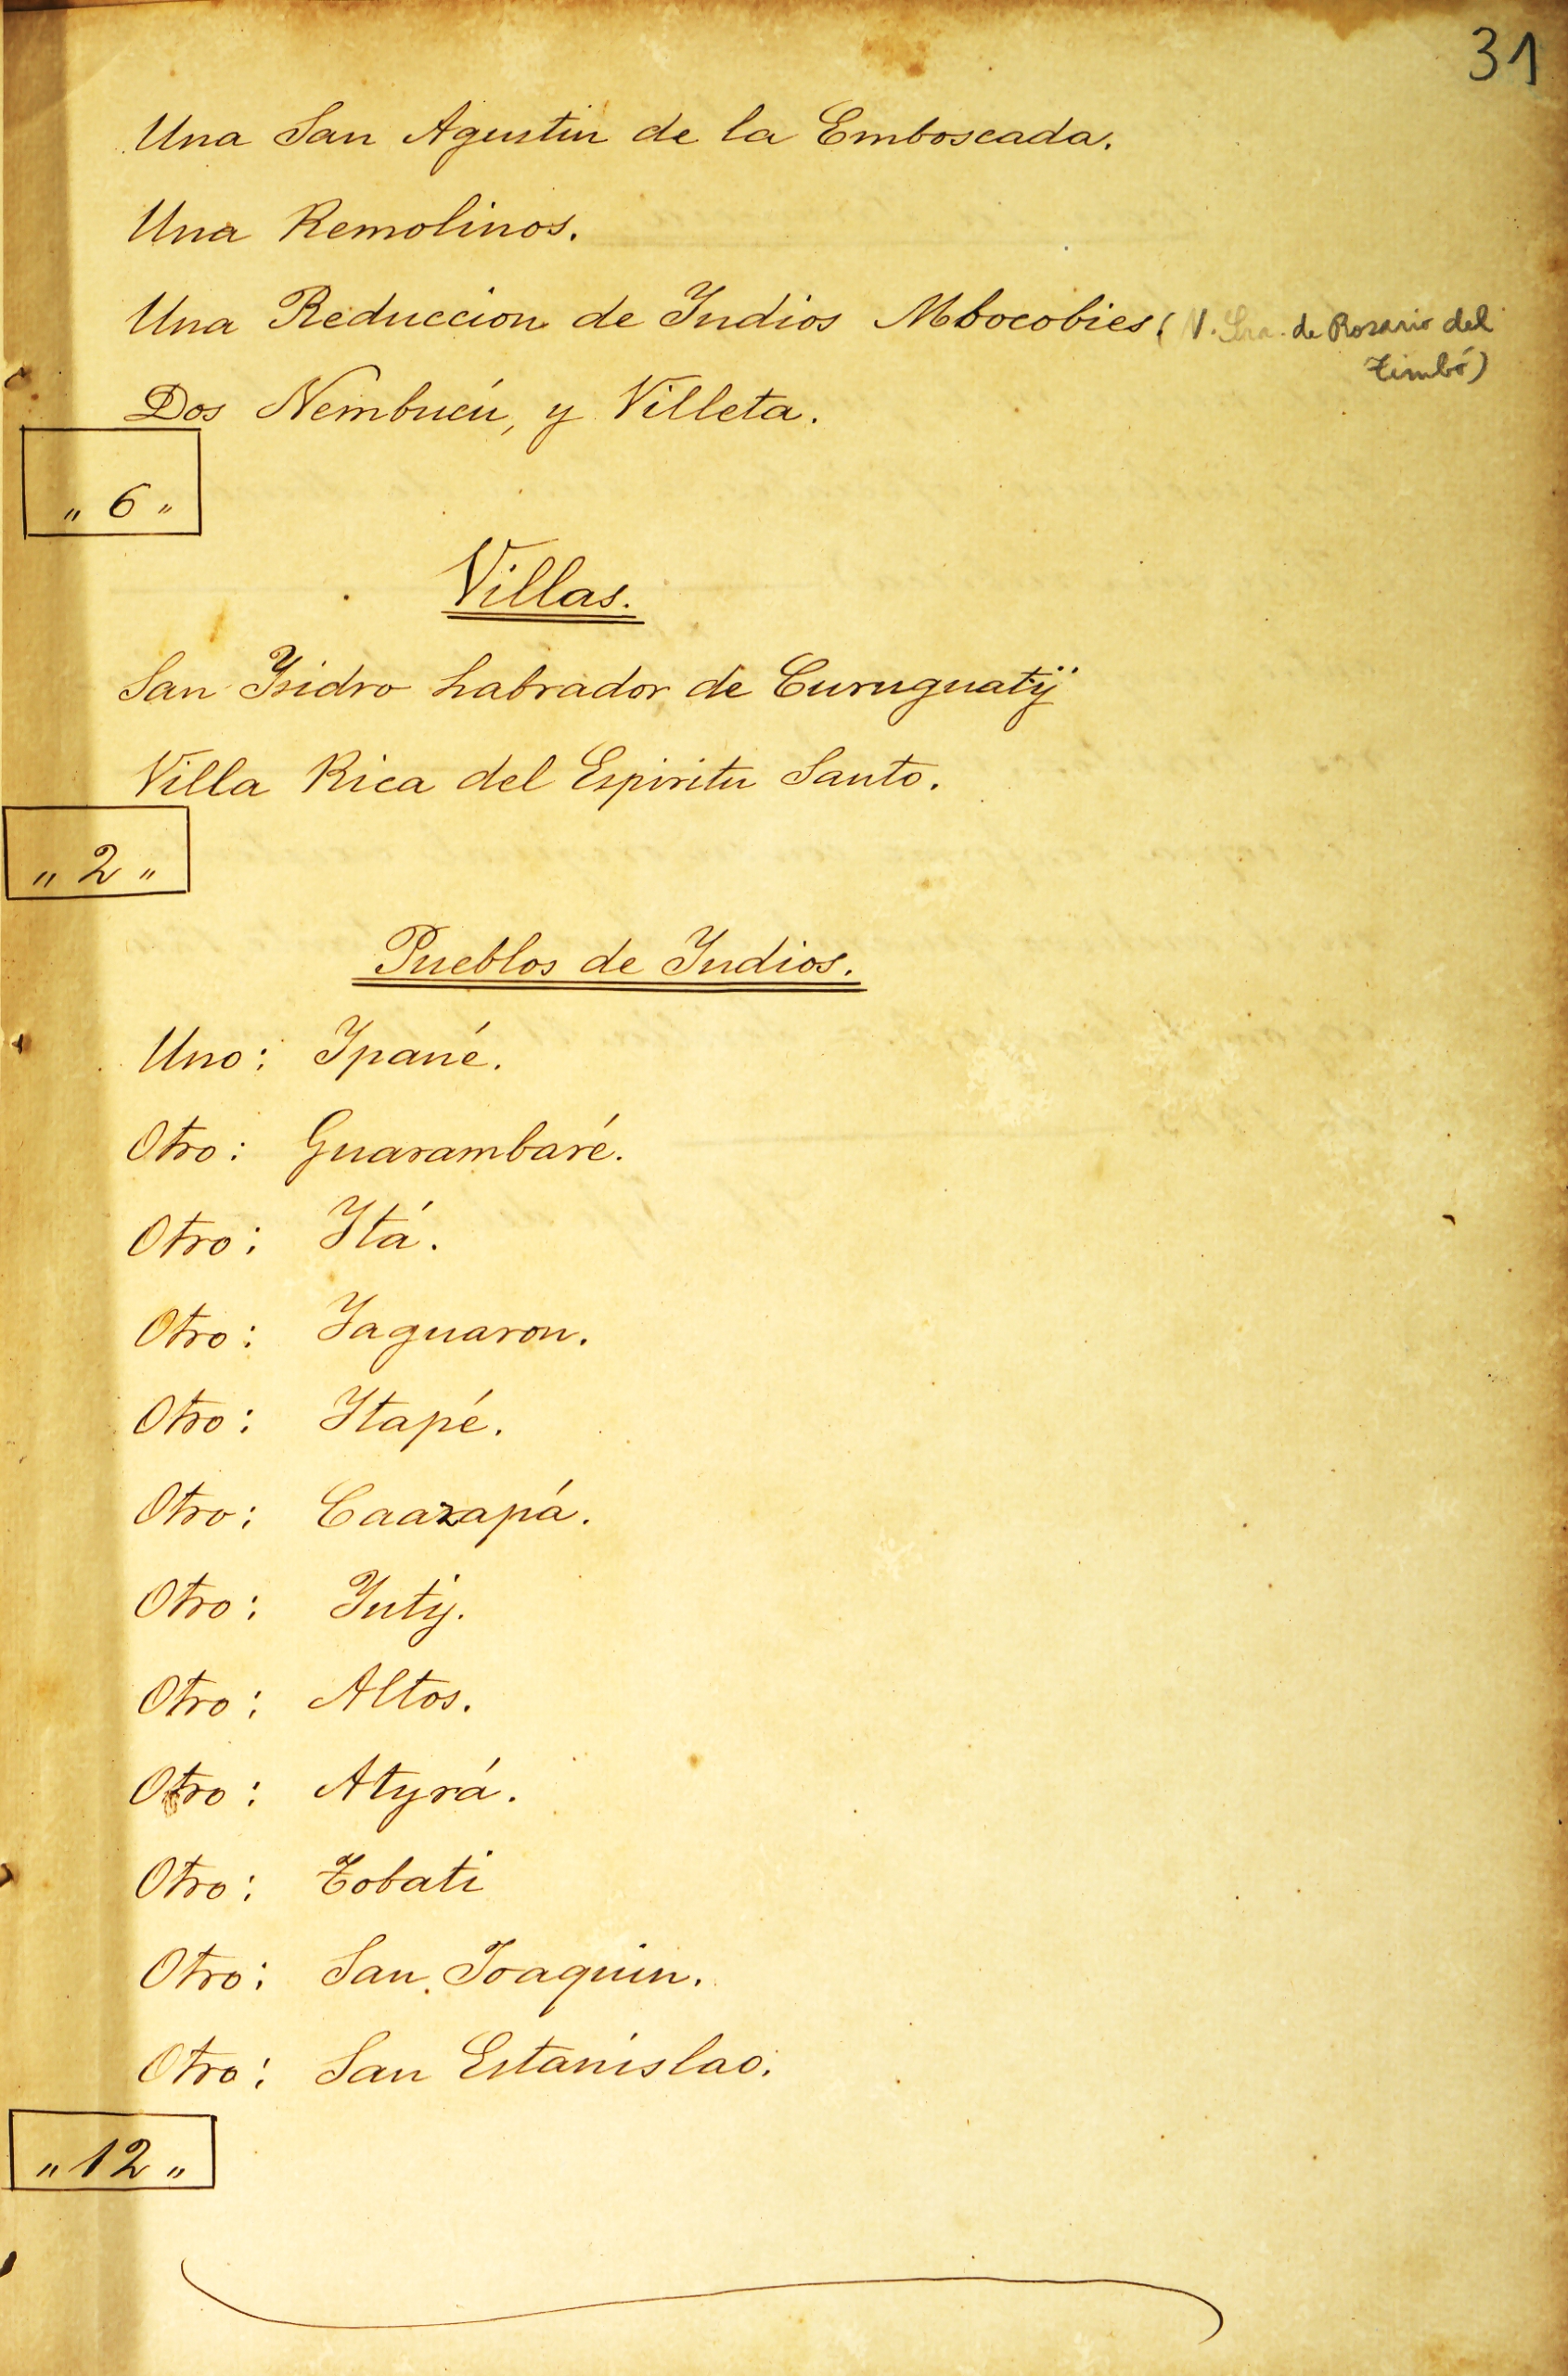 31
Una San Agustin de la Emboscada.
Una Remolinos.
Una Reduccion de Indios Mbocobies. (N. Sra. de Rosario del
Timbó)
Dos Ñembucú, y Villeta.
" 6 "
Villas.
San Ysidro Labrador de Curuguatÿ
Villa Rica del Espiritu Santo.
" 2 "
Pueblos de Indios.
Uno: Ipané.
Otro: Guarambaré.
Otro: Itá.
Otro: Jaguaron.
Otro: Itapé.
Otro: Caazapá.
Otro: Yuty.
Otro: Altos.
Otro: Atyrá.
Otro: Tobati
Otro: San Joaquin.
Otro: San Estanislao.
" 12 "